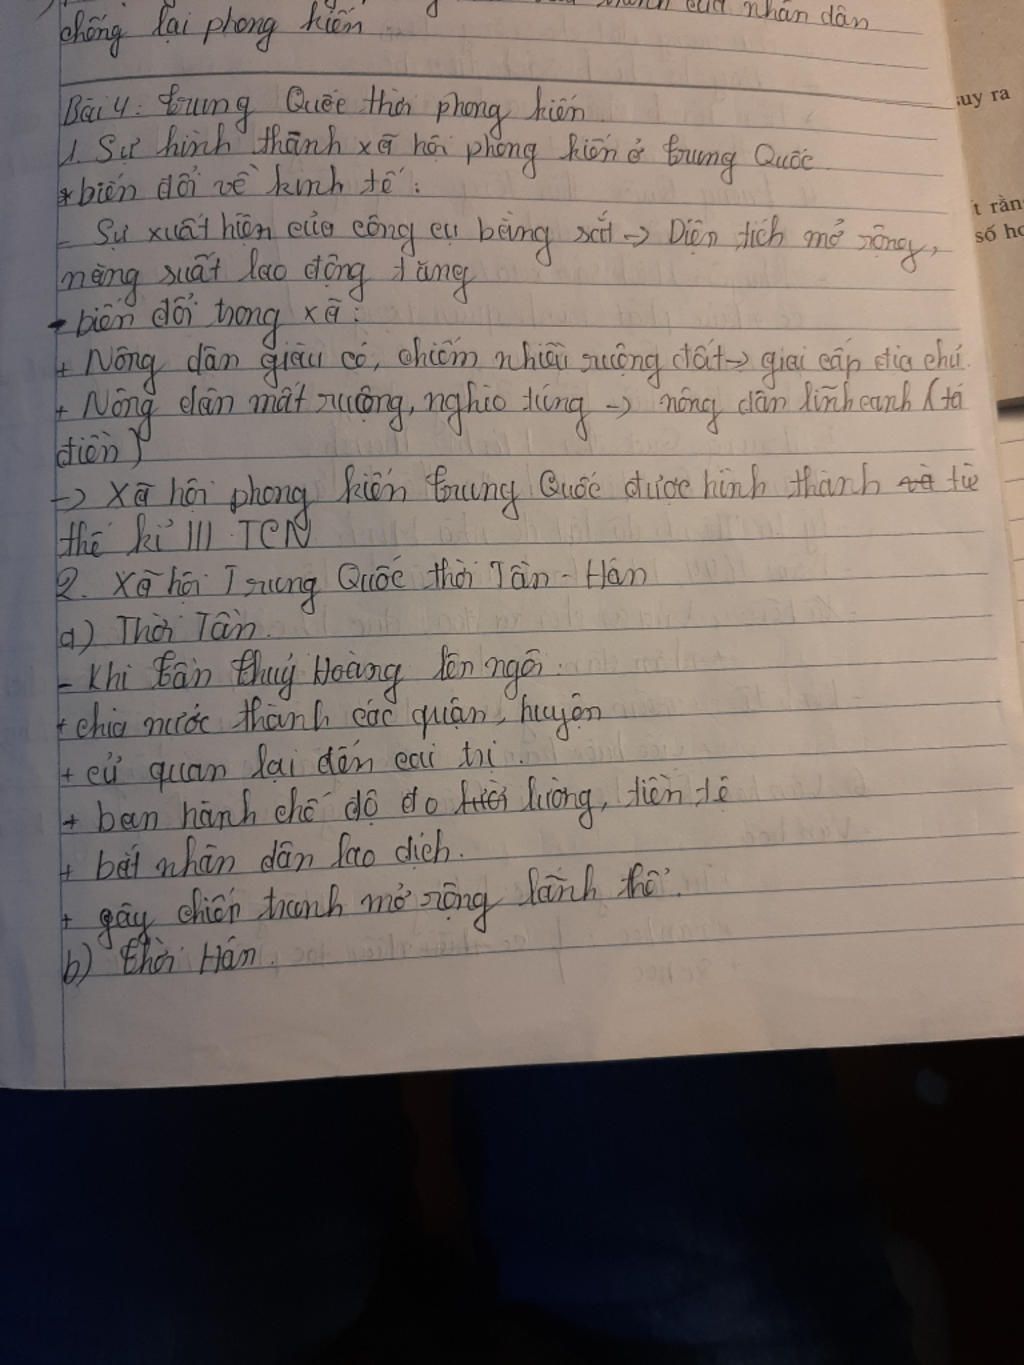 của nhân dân
chống lại phong kiến
Bài 4: trung Quốc thời phong kiến
1. Sự hình thành xã hội phong kiến ở trung Quốc
* biến đổi về kinh tế:
- Sự xuất hiện của công cụ bằng sắt -> Diện tích mở rộng,
năng suất lao động tăng
- biến đổi trong xã:
+ Nông dân giàu có, chiếm nhiều ruộng đất -> giai cấp địa chủ.
+ Nông dân mất ruộng, nghèo túng -> nông dân lĩnh canh (tá
điền)
-> Xã hội phong kiến trung Quốc được hình thành và từ
thế kỉ III TCN
2. Xã hội Trung Quốc thời Tần - Hán
a) Thời Tần.
- Khi tần thuỷ Hoàng lên ngôi:
+ chia nước thành các quận, huyện
+ cử quan lại đến cai trị.
+ ban hành chế độ đo lường, tiền tệ
+ bắt nhân dân lao dịch.
+ gây chiến tranh mở rộng lãnh thổ.
b) thời Hán.
suy ra
t rằn
số họ